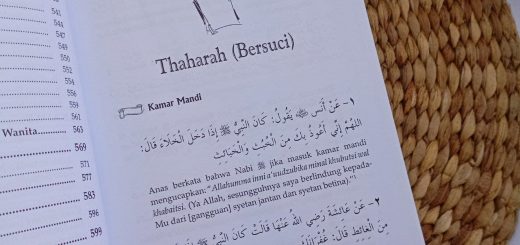 541
547
549
550
552
554
558
559
561
Wanita
563
569
571
577
583
596
599
Thaharah (Bersuci)
Kamar Mandi
١- عَنْ أَنَسٍ ﷺ يَقُولُ: كَانَ النَّبِيُّ ﷺ إِذَا دَخَلَ الْخَلَاءَ قَالَ:
اللهُمَّ إِنِّي أَعُوذُ بِكَ مِنَ الْخُبْثِ وَالْخَبَائِثِ
Anas berkata bahwa Nabi ﷺ jika masuk kamar mandi
mengucapkan: "Allahumma inni a'uudzubika minal khubutsi wal
khabaitsi. (Ya Allah, sesungguhnya saya berlindung kepada-
Mu dari [gangguan] syetan jantan dan syetan betina)."
٢- عَنْ عَائِشَةَ رَضِيَ اللهُ عَنْهَا قَالَتْ كَانَ
مِنَ الْغَائِطِ قَالَ: غُفْرَانَكَ